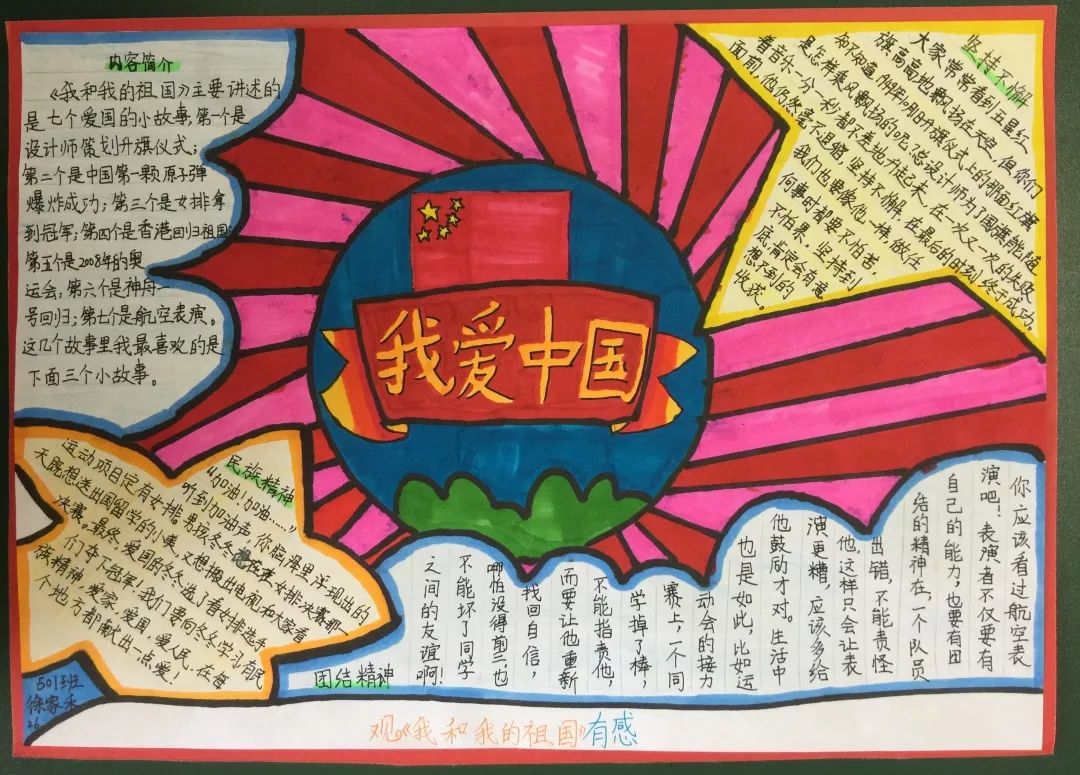 内容简介
《我和我的祖国》主要讲述的
是七个爱国的小故事,第一个是
设计师策划升旗仪式;
第二个是中国第一颗原子弹
爆炸成功;第三个是女排拿
到冠军;第四个是香港回归祖国;
第五个是2008年的奥
运会,第六个是神舟一
号回归;第七个是航空表演。
这几个故事里我最喜欢的是
下面三个小故事。
坚持不懈
大家常常看到五星红
旗高高地飘扬在天空,但你们
知不知道,开国升旗仪式上的那面红旗
是怎样乘风飘扬的呢?总设计师为了国旗能随
着音乐一分一秒都不差地升起来,在一次又一次的失败
面前,他仍然毫不退缩,坚持不懈,在最后的时刻终于成功。
我们也要像他一样,做任
何事时都要不怕苦
不怕累,坚持到
底肯定会有意
想不到的
收获。
我爱中国
民族精神
“加油!加油……”
听到加油声,你脑海里浮现出的
运动项目定有女排。男孩冬冬
女排决赛那一
天既想送出国留学的小美,又想搬出电视和大家看
决赛。最终,爱国的冬冬选了看女排选手
们夺下冠军!我们要向冬冬学习有民
族精神,爱家,爱国,爱人民,在每
个地方都献出一点爱!
团结精神
你应该看过航空表
演吧!表演者不仅要有
自己的能力,也要有团
结的精神在,一个队员
出错,不能责怪
他,这样只会让表
演更糟,应该多给
他鼓励才对。生活中
也是如此,比如运
动会的接力
赛上,一个同
学掉了棒,
不能指责他,
而要让他重新
找回自信,
哪怕没得前三,也
不能坏了同学
之间的友谊啊!
501班
徐家禾
26
观《我和我的祖国》有感